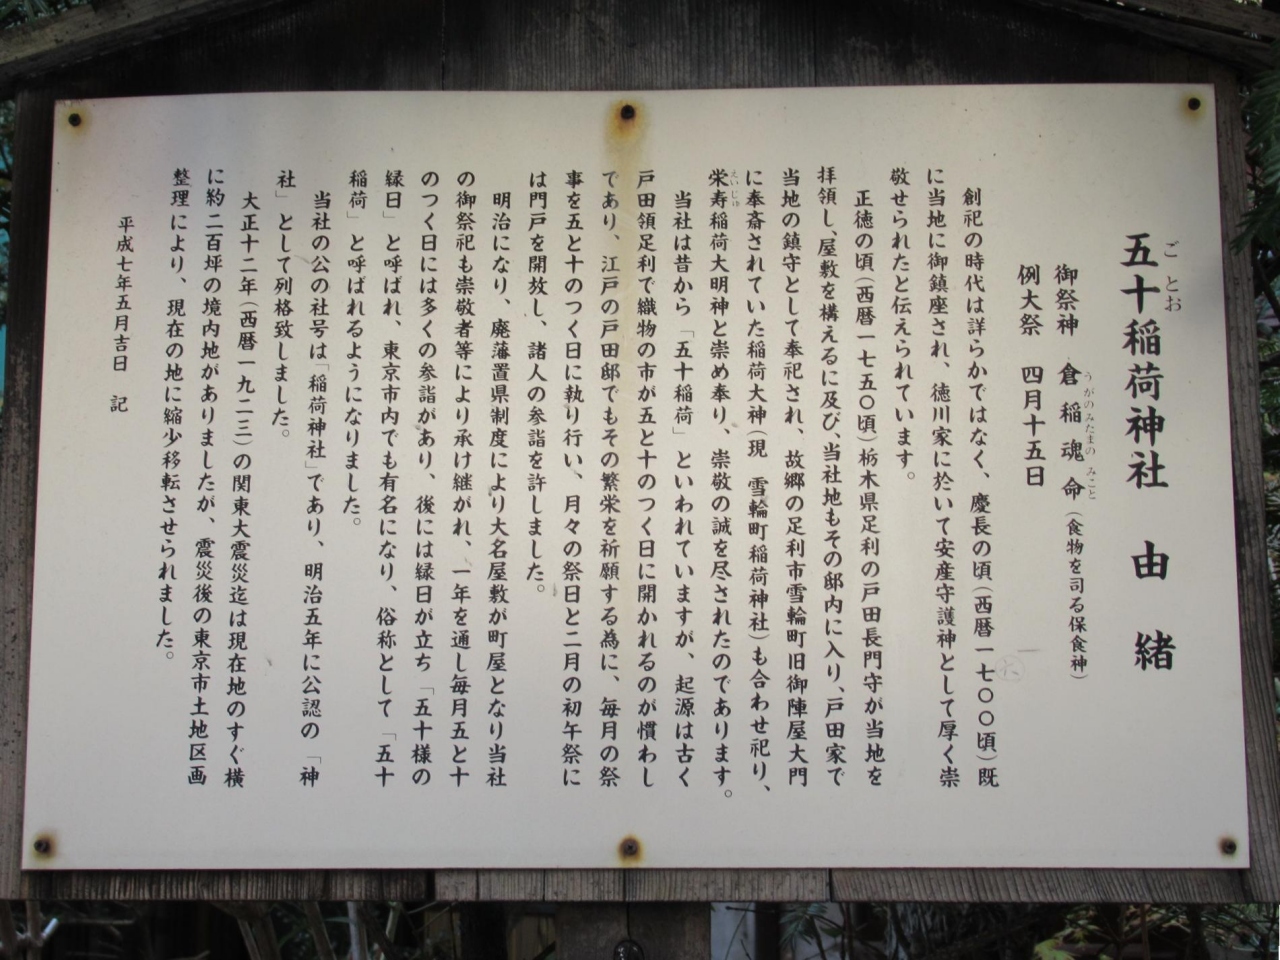 五十稲荷神社　由　緒
ごとお
御祭神　倉稲魂命（食物を司る保食神）
うがのみたまのみこと
例大祭　四月十五日
創祀の時代は詳らかではなく、慶長の頃（西暦一七〇〇頃）既
六
に当地に御鎮座され、徳川家に於いて安産守護神として厚く崇
敬せられたと伝えられています。
正徳の頃（西暦一七五〇頃）栃木県足利の戸田長門守が当地を
拝領し、屋敷を構えるに及び、当社地もその邸内に入り、戸田家で
当地の鎮守として奉祀され、故郷の足利市雪輪町旧御陣屋大門
に奉斎されていた稲荷大神（現　雪輪町稲荷神社）も合わせ祀り、
栄寿稲荷大明神と崇め奉り、崇敬の誠を尽されたのであります。
えいじゅ
当社は昔から「五十稲荷」といわれていますが、起源は古く
戸田領足利で織物の市が五と十のつく日に開かれるのが慣わし
であり、江戸の戸田邸でもその繁栄を祈願する為に、毎月の祭
事を五と十のつく日に執り行い、月々の祭日と二月の初午祭に
は門戸を開放し、諸人の参詣を許しました。
明治になり、廃藩置県制度により大名屋敷が町屋となり当社
の御祭祀も崇敬者等により承け継がれ、一年を通し毎月五と十
のつく日には多くの参詣があり、後には縁日が立ち「五十様の
縁日」と呼ばれ、東京市内でも有名になり、俗称として「五十
稲荷」と呼ばれるようになりました。
当社の公の社号は「稲荷神社」であり、明治五年に公認の「神
社」として列格致しました。
大正十二年（西暦一九二三）の関東大震災迄は現在地のすぐ横
に約二百坪の境内地がありましたが、震災後の東京市土地区画
整理により、現在の地に縮少移転させられました。
平成七年五月吉日　記